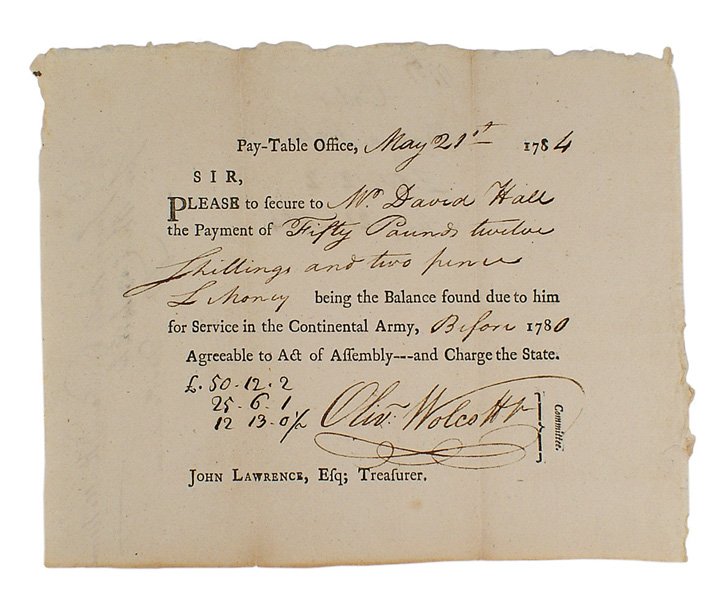 Pay-Table Office, May 21st 1784
SIR,
PLEASE to ſecure to Mr. David Hall
the Payment of Fifty Pounds twelve
Shillings and two pence
L Money being the Balance found due to him
for Service in the Continental Army, Before 1780
Agreeable to Act of Aſſembly---and Charge the State.
£. 50-12-2
25-6-1
12 13-0½
Olivr. Wolcott Jr
Committee.
JOHN LAWRENCE, Eſq; Treaſurer.